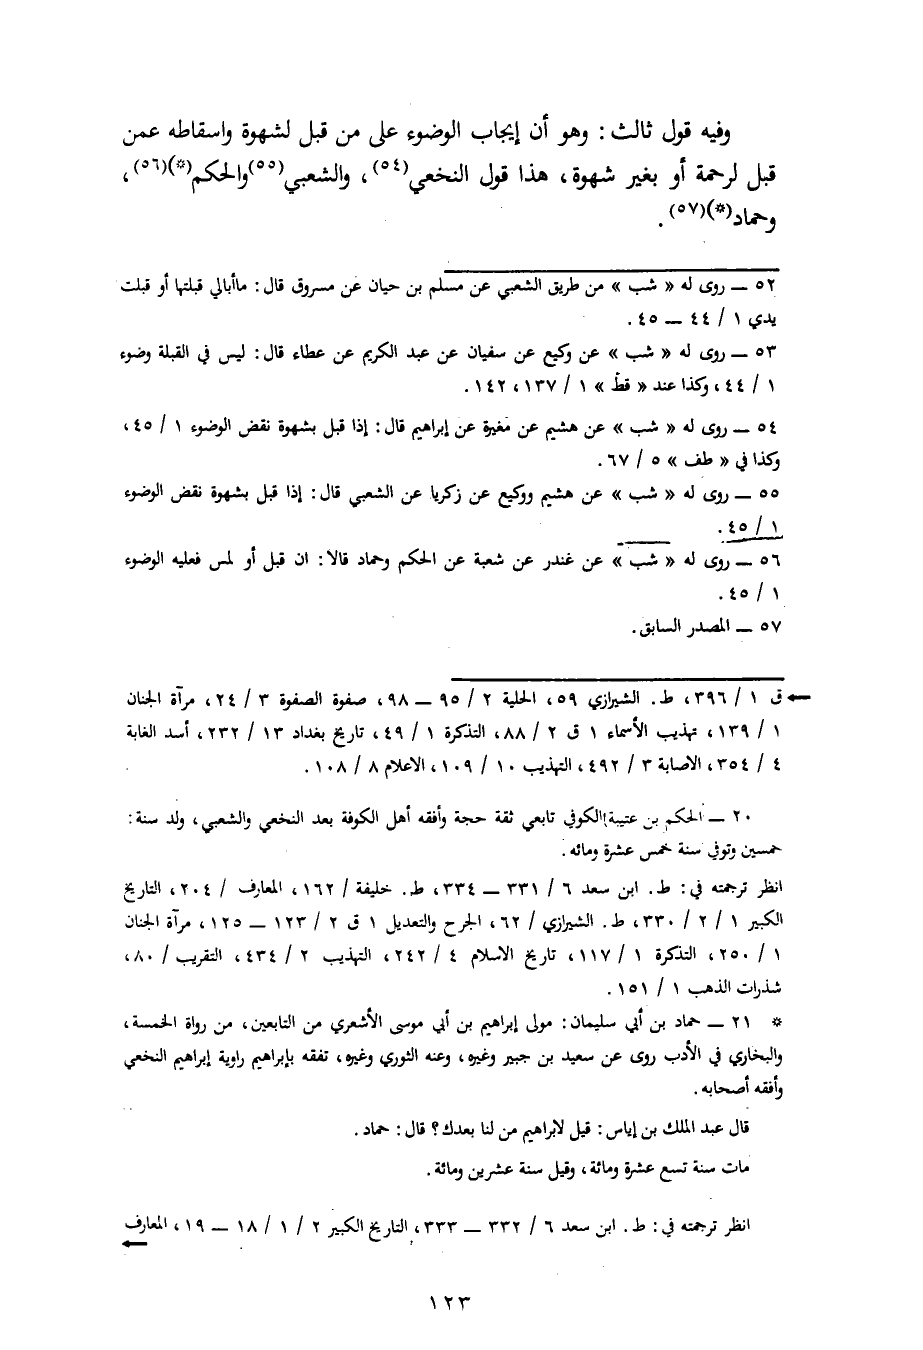 وفيه قول ثالث : وهو أن إيجاب الوضوء على من قبل لشهوة واسقاطه عمن
قبل لرحمة أو بغير شهوة، هذا قول النخعي(٥٤)، والشعبي(٥٥)والحكم(*)(٥٦)،
وحماد(*)(٥٧).
٥٢ — روى له « شب » من طريق الشعبي عن مسلم بن حيان عن مسروق قال : ماأبالي قبلتها أو قبلت
يدي ١ / ٤٤ — ٤٥ .
٥٣ — روى له « شب » عن وكيع عن سفيان عن عبد الكريم عن عطاء قال : ليس في القبلة وضوء
١ / ٤٤، وكذا عند « قط » ١ / ١٣٧، ١٤٢ .
٥٤ — روى له « شب » عن هشيم عن مغيرة عن إبراهيم قال : إذا قبل بشهوة نقض الوضوء ١ / ٤٥،
وكذا في « طف » ٥ / ٦٧ .
٥٥ — روى له « شب » عن هشيم ووكيع عن زكريا عن الشعبي قال : إذا قبل بشهوة نقض الوضوء
١ / ٤٥ .
٥٦ — روى له « شب » عن غندر عن شعبة عن الحكم وحماد قالا : ان قبل أو لمس فعليه الوضوء
١ / ٤٥ .
٥٧ — المصدر السابق .
← ق ١ / ٣٩٦، ط. الشيرازي ٥٩، الحلية ٢ / ٩٥ — ٩٨، صفوة الصفوة ٣ / ٢٤، مرآة الجنان
١ / ١٣٩، تهذيب الأسماء ١ ق ٢ / ٨٨، التذكرة ١ / ٤٩، تاريخ بغداد ١٣ / ٢٣٢، أسد الغابة
٤ / ٣٥٤، الاصابة ٣ / ٤٩٢، التهذيب ١٠ / ١٠٩، الاعلام ٨ / ١٠٨ .
٢٠ — الحكم بن عتيبة الكوفي تابعي ثقة حجة وأفقه أهل الكوفة بعد النخعي والشعبي، ولد سنة :
خمسين وتوفي سنة خمس عشرة ومائه .
انظر ترجمته في : ط. ابن سعد ٦ / ٣٣١ — ٣٣٤، ط. خليفة / ١٦٢، المعارف / ٢٠٤، التاريخ
الكبير ١ / ٢ / ٣٣٠، ط. الشيرازي / ٦٢، الجرح والتعديل ١ ق ٢ / ١٢٣ — ١٢٥، مرآة الجنان
١ / ٢٥٠، التذكرة ١ / ١١٧، تاريخ الاسلام ٤ / ٢٤٢، التهذيب ٢ / ٤٣٤، التقريب / ٨٠،
شذرات الذهب ١ / ١٥١ .
* ٢١ — حماد بن أبي سليمان : مولى إبراهيم بن أبي موسى الأشعري من التابعين، من رواة الخمسة،
والبخاري في الأدب روى عن سعيد بن جبير وغيره، وعنه الثوري وغيره، تفقه بإبراهيم راوية إبراهيم النخعي
وأفقه أصحابه .
قال عبد الملك بن إياس : قيل لابراهيم من لنا بعدك؟ قال : حماد .
مات سنة تسع عشرة ومائة، وقيل سنة عشرين ومائة .
انظر ترجمته في : ط. ابن سعد ٦ / ٣٣٢ — ٣٣٣، التاريخ الكبير ٢ / ١ / ١٨ — ١٩، المعارف ←
١٢٣